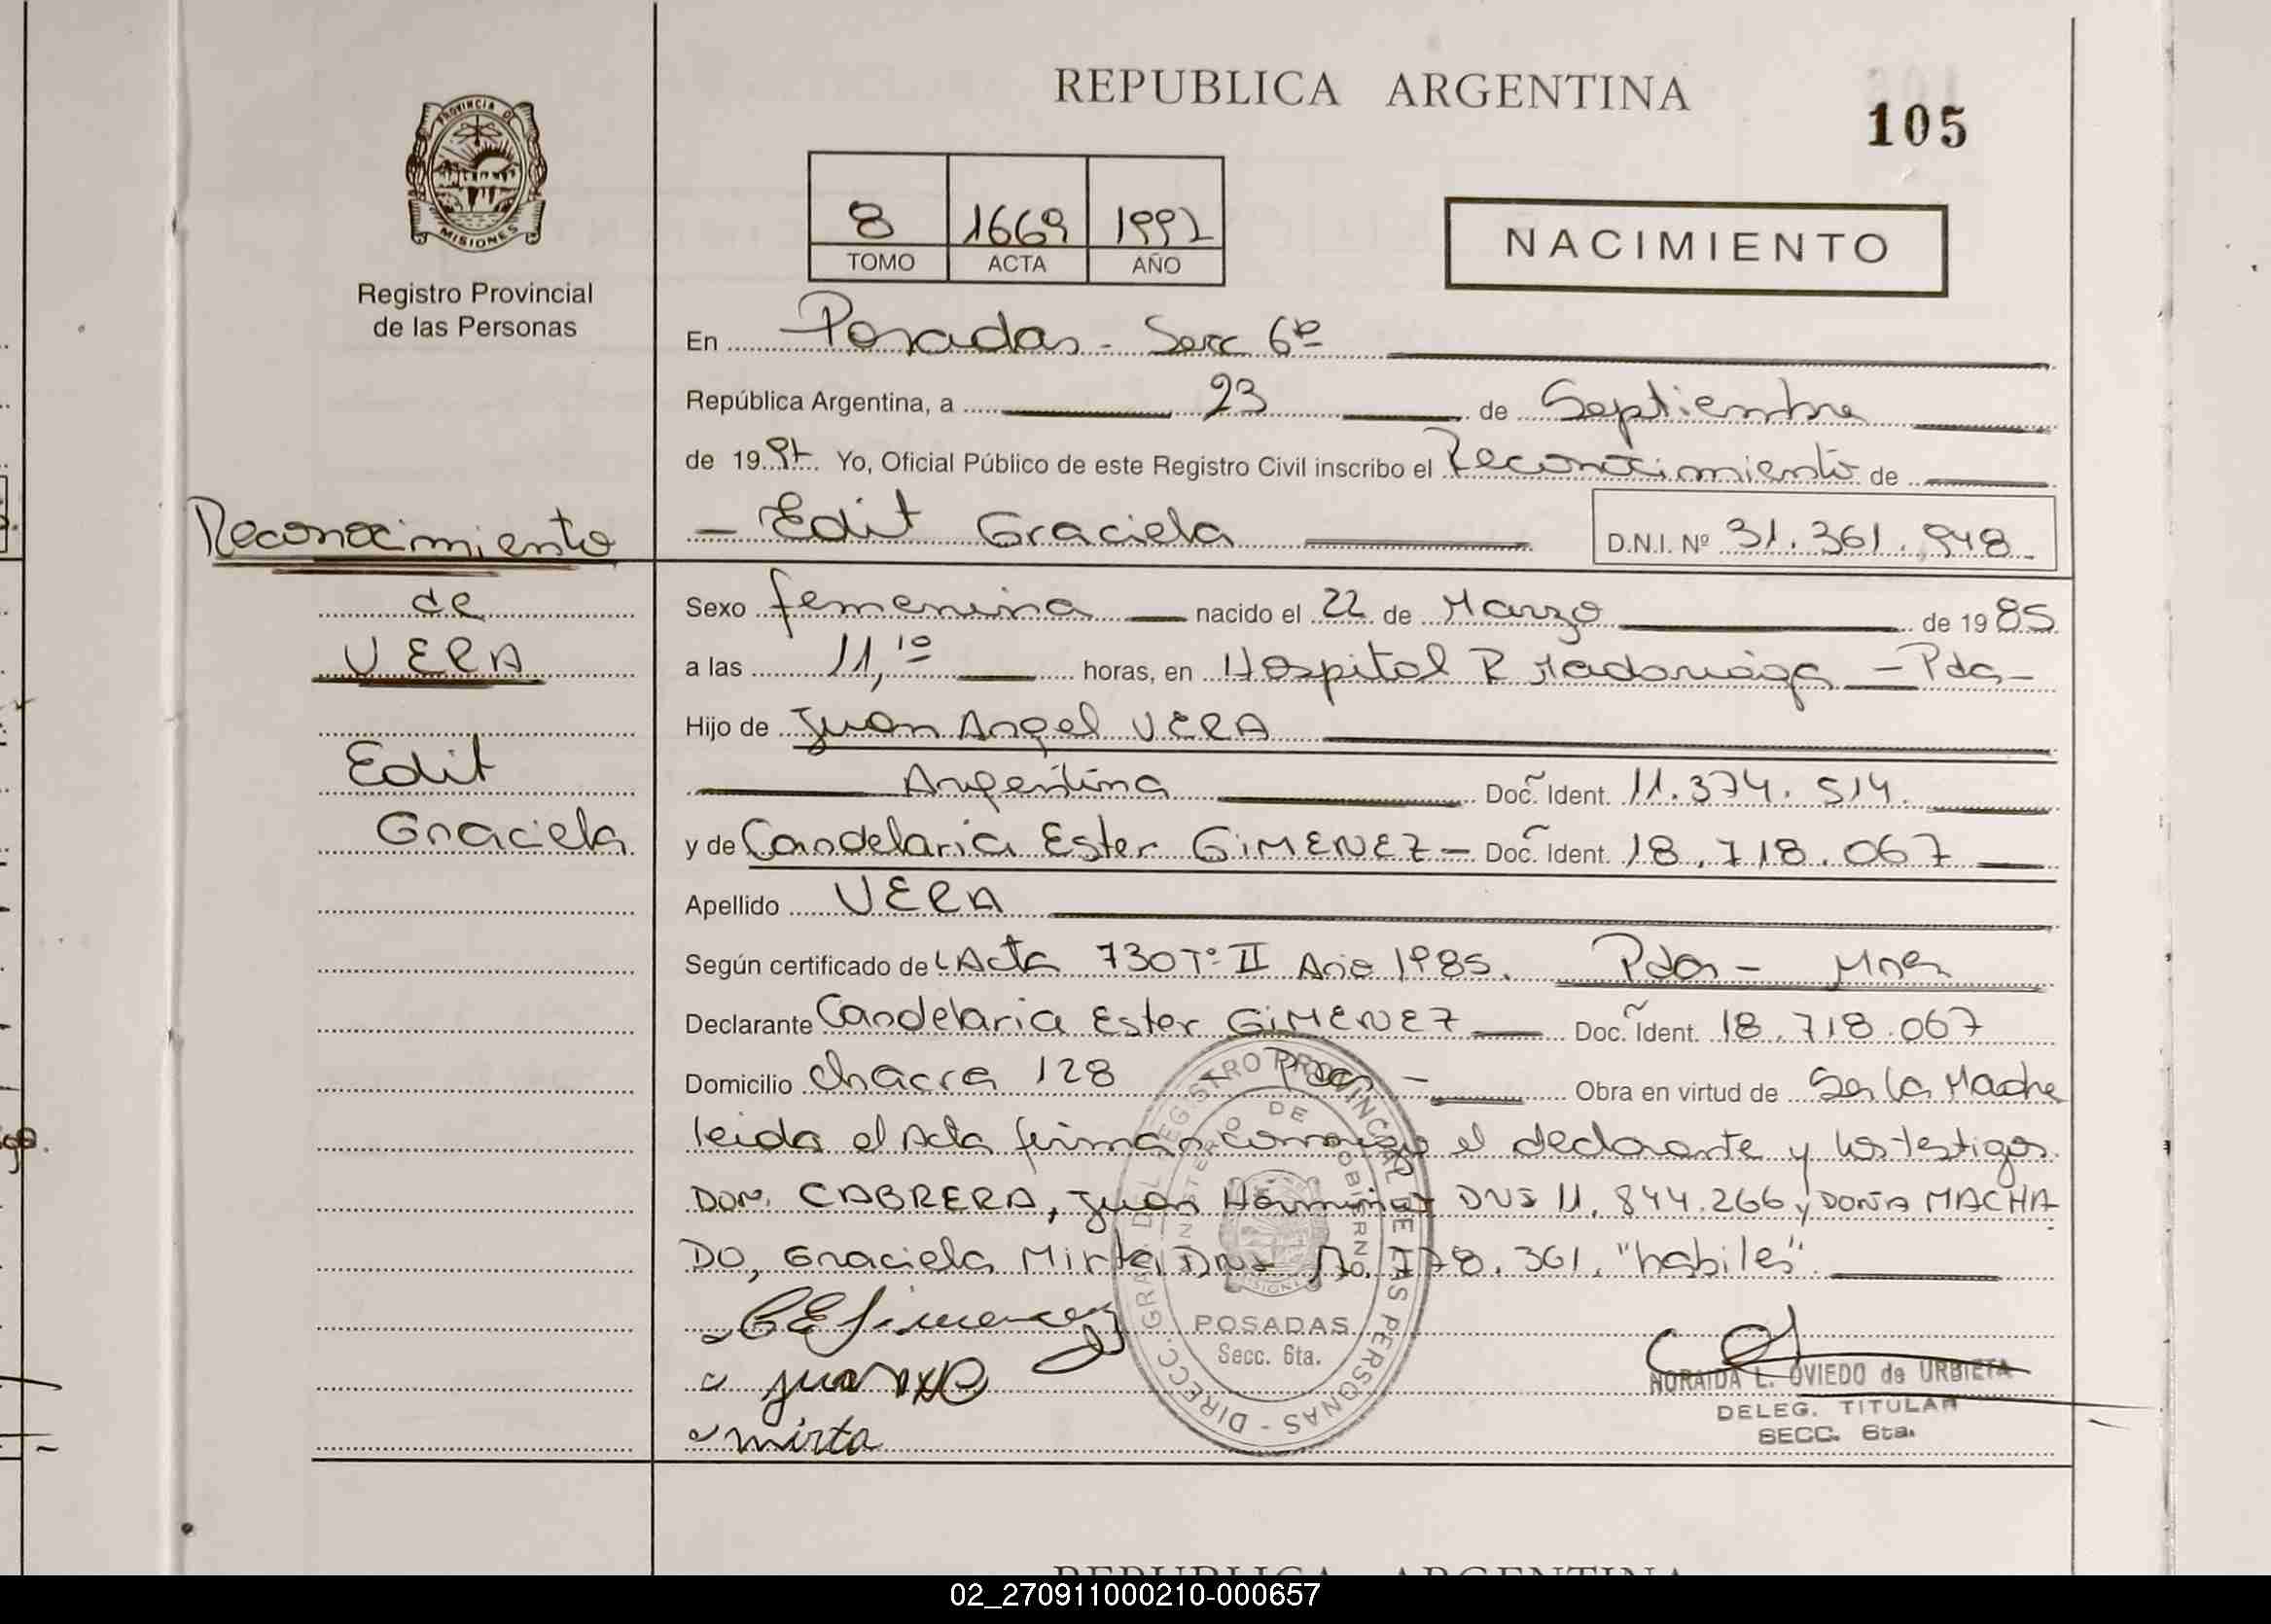 REPUBLICA ARGENTINA
105
PROVINCIA DE MISIONES
Registro Provincial
de las Personas
8 1669 1992
TOMO ACTA AÑO
NACIMIENTO
En Posadas - Secc 6ª
República Argentina, a 23 de Septiembre
de 19 Yo, Oficial Público de este Registro Civil inscribo el Reconocimiento de
Reconocimiento
- Edit Graciela D.N.I. Nº 31.361.948
de
Sexo femenina nacido el 22 de Marzo de 1985
VERA
a las 11,10 horas, en Hospital R Madariaga - Pdas -
Hijo de Juan Angel VERA
Edit
Argentina Doc. Ident. 11.374.514.
Graciela
y de Candelaria Ester GIMENEZ - Doc. Ident. 18.718.067
Apellido VERA
Según certificado de Acta 730 Tº II Año 1985. Pdas - Mnes
Declarante Candelaria Ester GIMENEZ Doc. Ident. 18.718.067
Domicilio chacra 128 - Pdas - Obra en virtud de Ser la Madre
leida el Acta firman conmigo el declarante y los testigos
DON. CABRERA, Juan DNI 11.844.266 y DOÑA MACHA
DO, Graciela Mirta DNI .778.361. "habiles".
CEGimenez
Juan
mirta
DIRECC. GRAL. DEL REGISTRO PROVINCIAL DE LAS PERSONAS
MINISTERIO DE GOBIERNO
MISIONES
POSADAS
Secc. 6ta.
NORAIDA L. OVIEDO de URBIETA
DELEG. TITULAR
SECC. 6ta.
REPUBLICA ARGENTINA
02_270911000210-000657